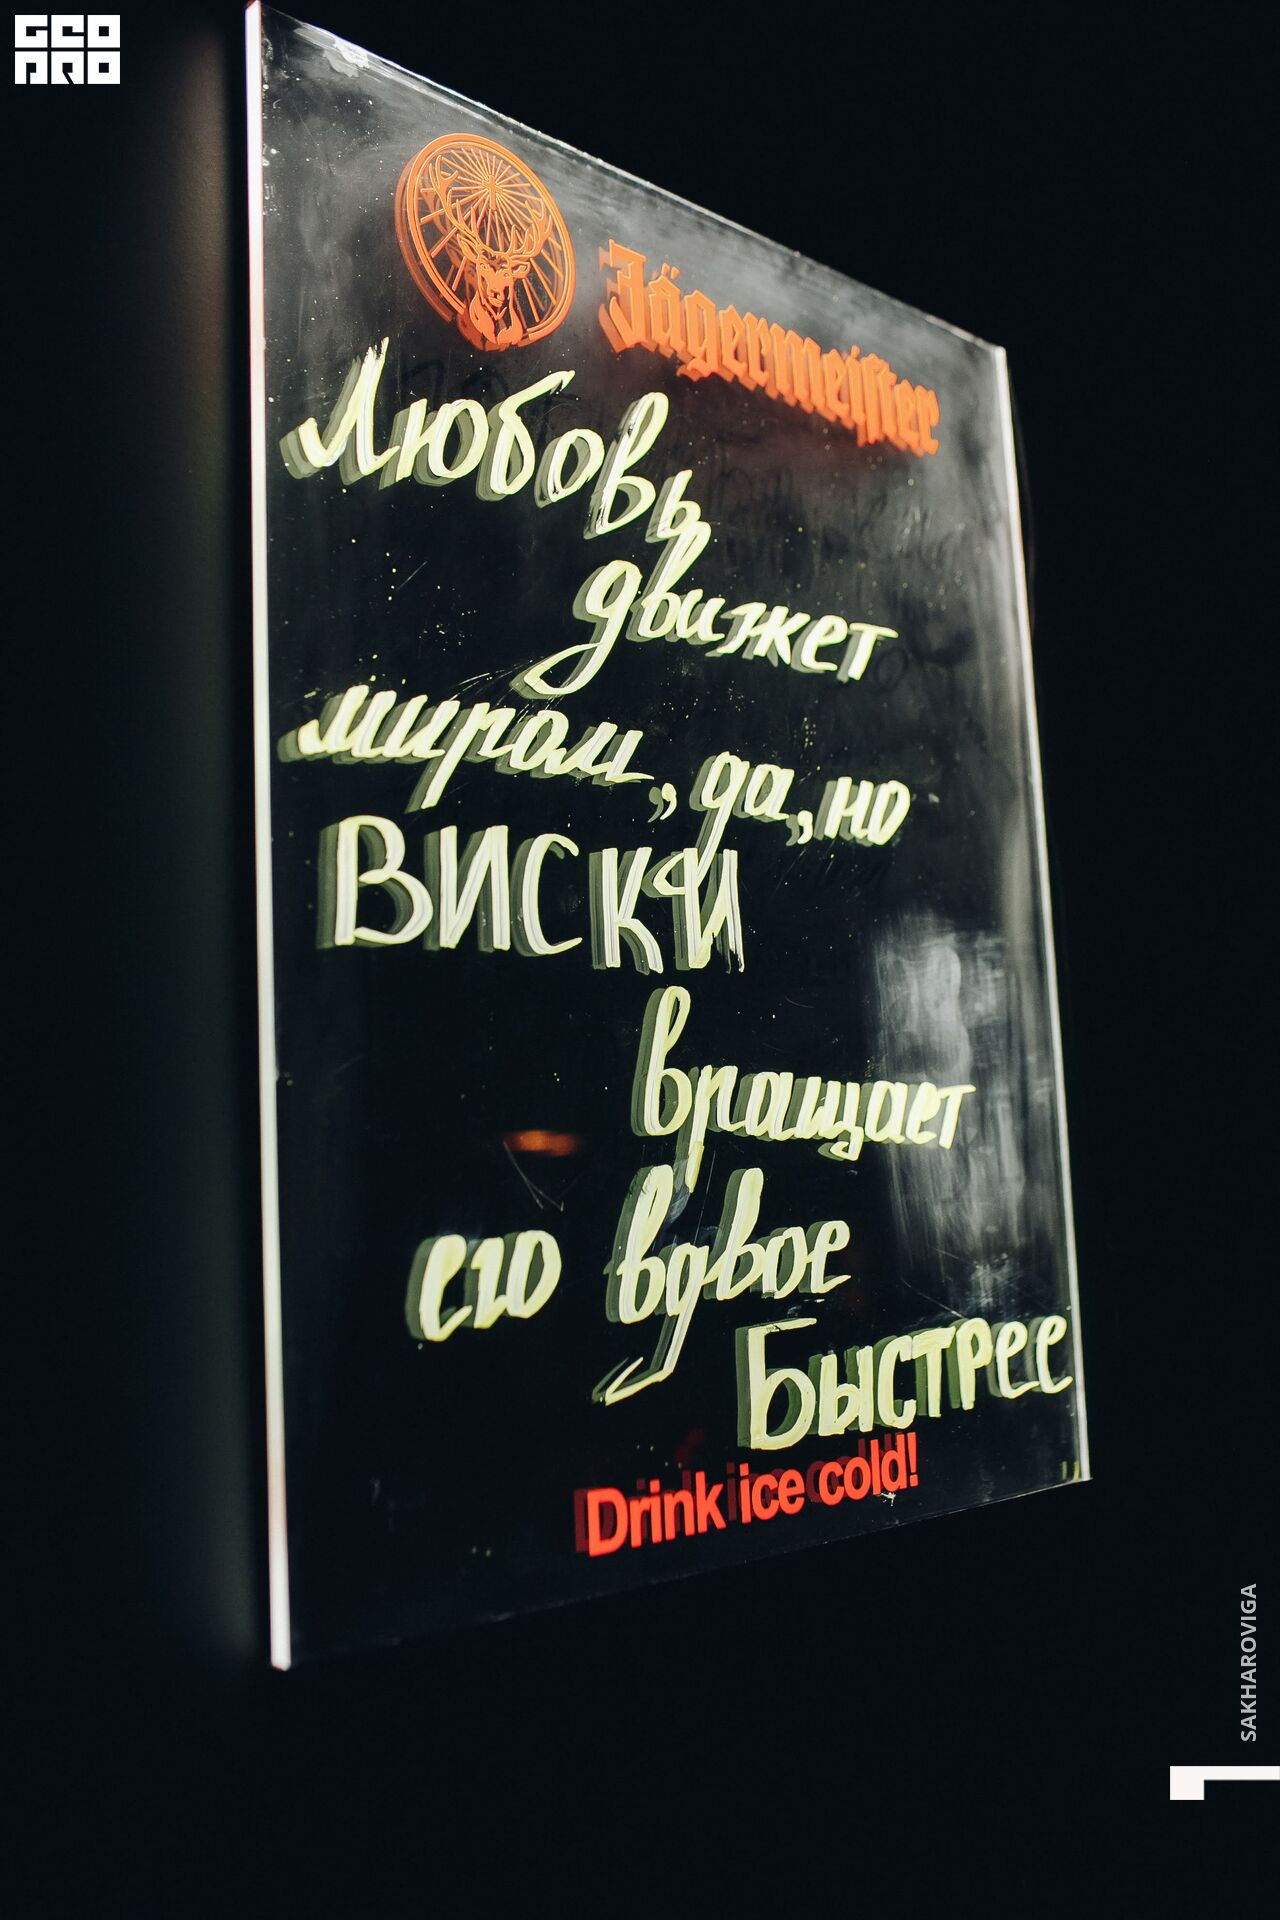 GEO
PRO
Jägermeister
Любовь
движет
миром, да, но
ВИСКИ
вращает
его вдвое
Быстрее
Drink ice cold!
SAKHAROVIGA